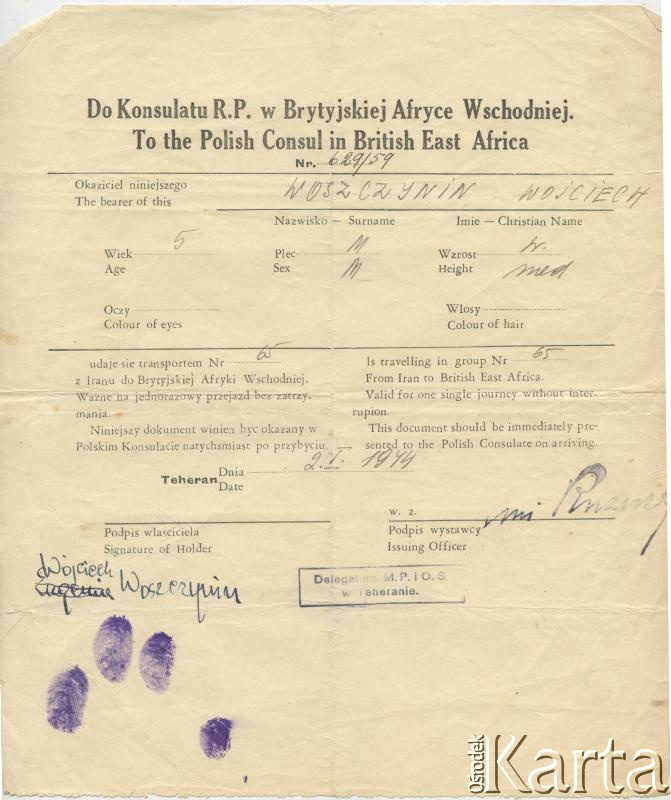 Do Konsulatu R.P. w Brytyjskiej Afryce Wschodniej.
To the Polish Consul in British East Africa
Nr. 629/59
Okaziciel niniejszego
The bearer of this
WOSZCZYNIN WOJCIECH
Nazwisko – Surname Imie – Christian Name
Wiek 5
Age
Plec M
Sex M
Wzrost
Height med
Oczy
Colour of eyes
Wlosy
Colour of hair
udaje sie transportem Nr 65
z Iranu do Brytyjskiej Afryki Wschodniej.
Wazne na jednorazowy przejazd bez zatrzy-
mania.
Niniejszy dokument winien byc okazany w
Polskim Konsulacie natychsmiast po przybyciu.
Is travelling in group Nr 65
From Iran to British East Africa.
Valid for one single journey without inter
rupion.
This document should be immediately pre-
sented to the Polish Consulate on arriving.
Teheran
Dnia 2.I. 1944
Date
Podpis wlasciciela
Signature of Holder
w. z.
Podpis wystawcy
Issuing Officer
Wojciech
Woszczynin
Delegatura M.P. i O.S.
w Teheranie.
Ośrodek Karta